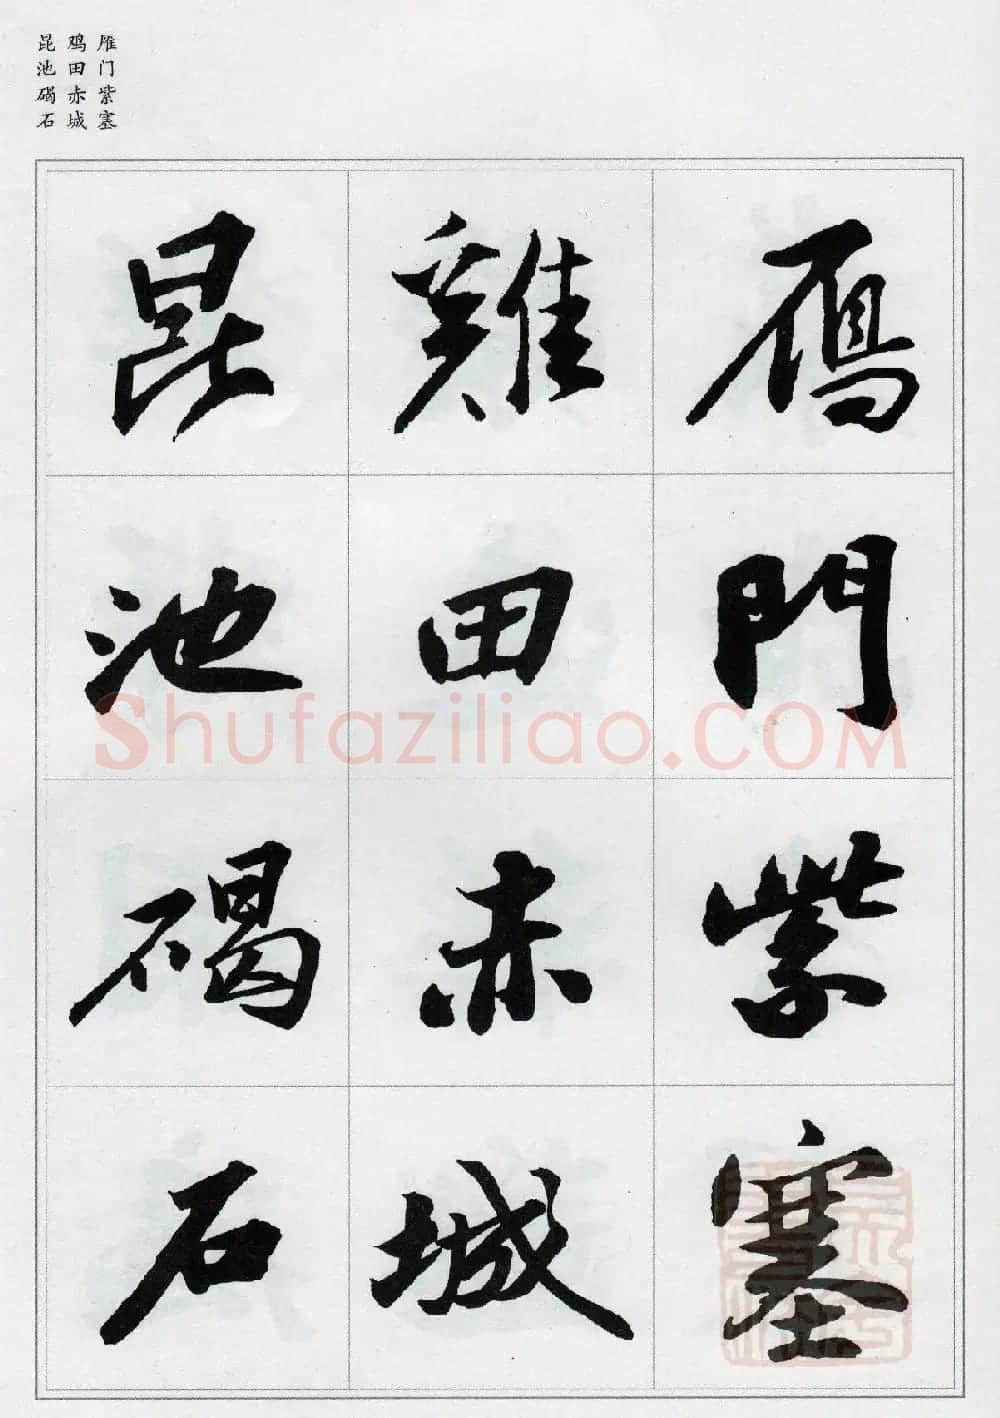 雁门紫塞
鸡田赤城
昆池碣石
鴈門紫塞
雞田赤城
昆池碣石
Shufaziliao.COM